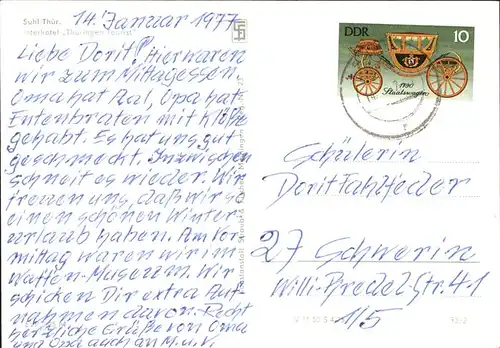 Suhl Thür.
Interhotel „Thüringen Tourist"
14. Januar 1977
Liebe Dorit! Hier waren
wir zum Mittagessen.
Oma hat Aal, Opa hat
Entenbraten mit Klöße
gehabt. Es hat uns gut
geschmeckt. Inzwischen
schneit es wieder. Wir
freuen uns, daß wir so
einen schönen Winter-
urlaub haben. Am Vor-
mittag waren wir im
Waffen-Museum. Wir
schicken Dir extra Auf-
nahmen davon. Recht
herzliche Grüße von Oma
und Opa auch an M. u. V.
DDR
10
1790
Staatswagen
Schülerin
Dorit Fahlfeder
27 Schwerin
Willi-Bredel-Str. 41
1/5